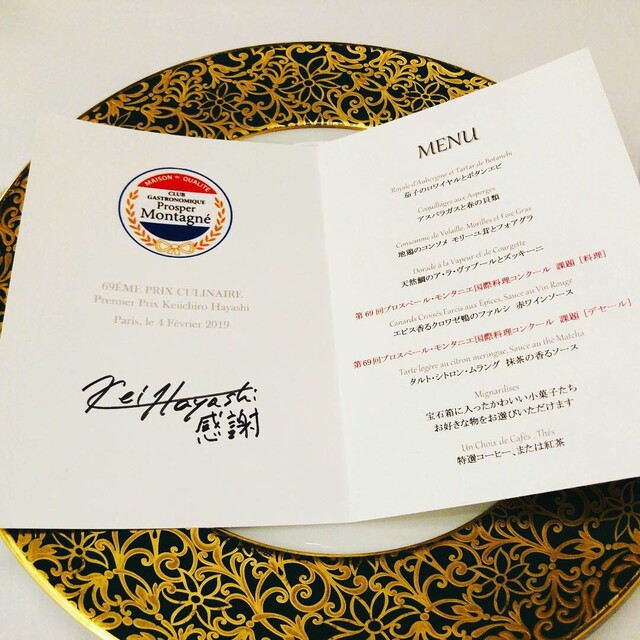 MAISON de QUALITÉ
CLUB
GASTRONOMIQUE
Prosper
Montagné
69ÉME PRIX CULINAIRE
Premier Prix Keiichiro Hayashi
Paris, le 4 Février 2019
Kei Hayashi
感謝
MENU
Royale d'Aubergine et Tartar de Botanebi
茄子のロワイヤルとボタンエビ
Coquillages aux Asperges
アスパラガスと春の貝類
Consomme de Volaille, Morilles et Foie Gras
地鶏のコンソメ モリーユ茸とフォアグラ
Dorade a la Vapeur et de Courgette
天然鯛のア・ラ・ヴァプールとズッキーニ
第69回プロスペール・モンタニエ国際料理コンクール 課題 [料理]
Canards Croises Farcis aux Epices, Sauce au Vin Rouge
エピス香るクロワゼ鴨のファルシ 赤ワインソース
第69回プロスペール・モンタニエ国際料理コンクール 課題 [デセール]
Tarte légère au citron meringue, Sauce au thé Matcha
タルト・シトロン・ムラング 抹茶の香るソース
Mignardises
宝石箱に入ったかわいい小菓子たち
お好きな物をお選びいただけます
Un Choix de Cafés , Thés
特選コーヒー、または紅茶